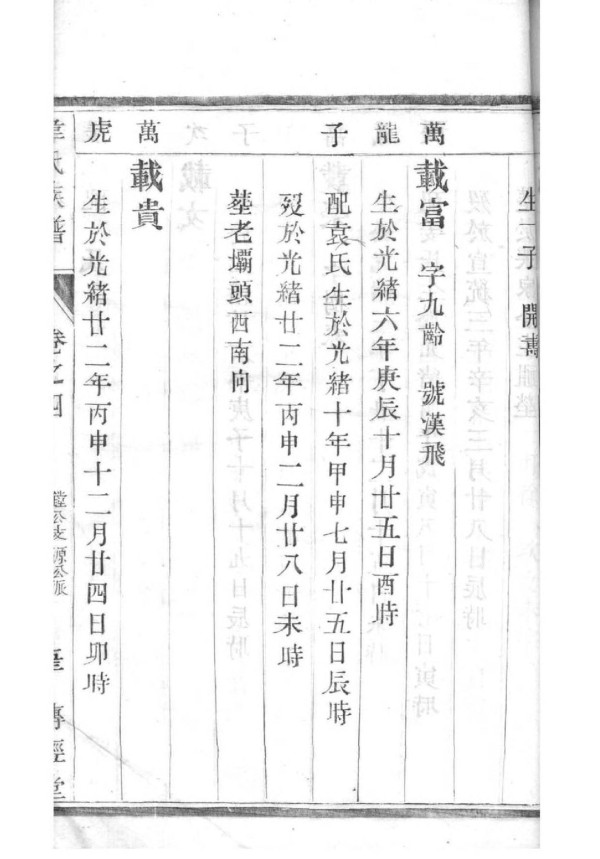 生一子開壽
萬龍子
載富 字九齡 號漢飛
生於光緒六年庚辰十月廿五日酉時
配袁氏生於光緒十年甲申七月廿五日辰時
歿於光緒廿二年丙申二月廿八日未時
塟老壩頭西南向
萬虎
載貴
生於光緒廿二年丙申十二月廿四日卯時
韋氏族譜 卷之四 瑩公支 源公派 傳經堂